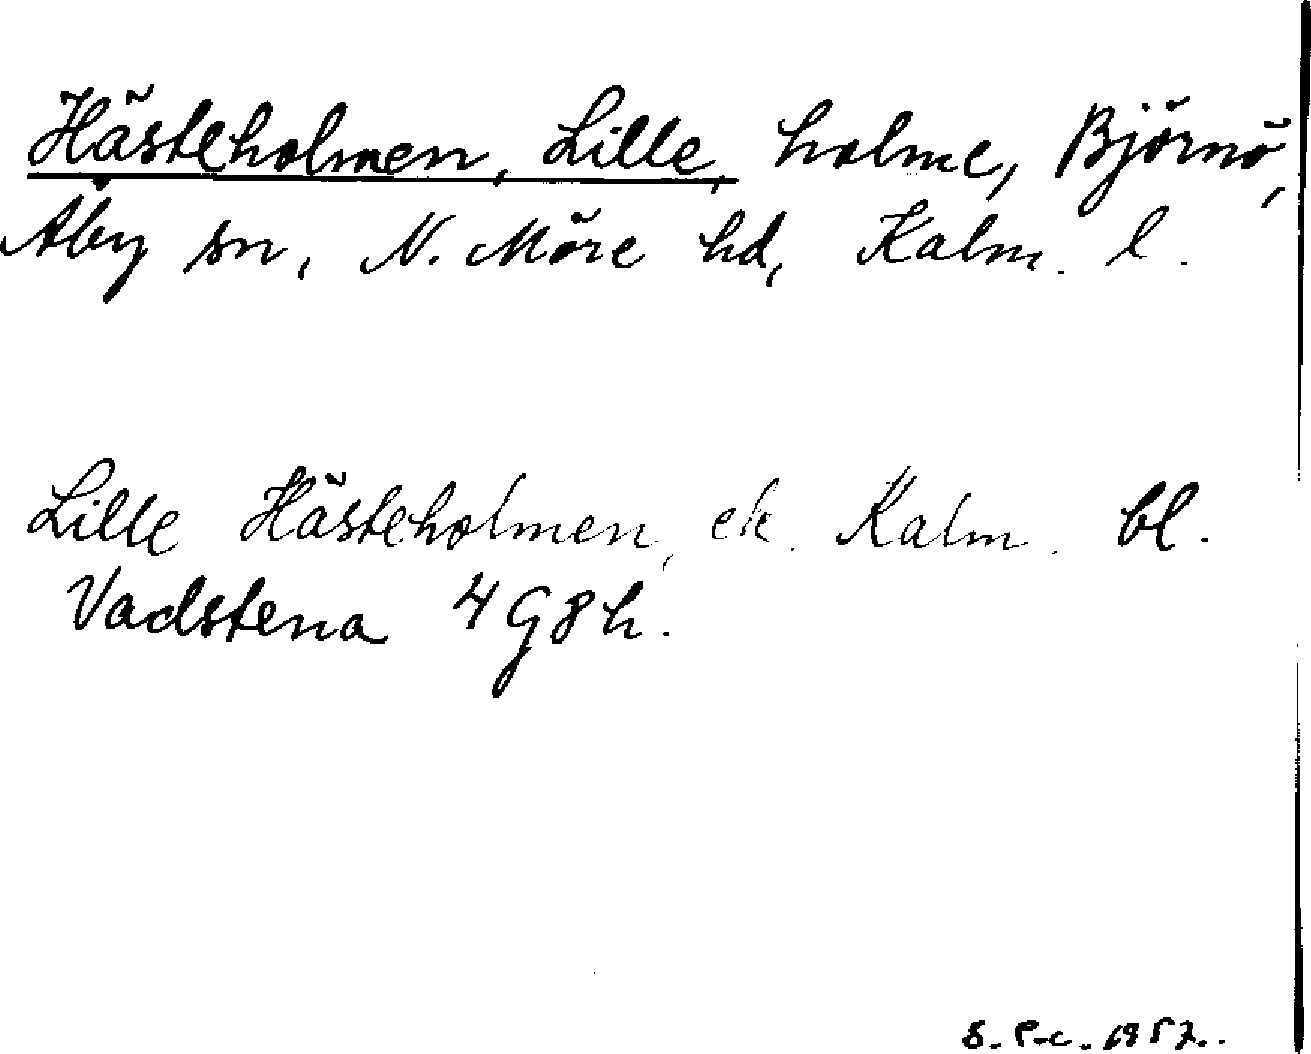 Hästeholmen, Lille, holme, Björnö,
Åby sn, N. Möre hd, Kalm. l.
Lille Hästeholmen, ek. Kalm. bl.
Vadstena 4 G 8 h.
S. P-c. 1957.